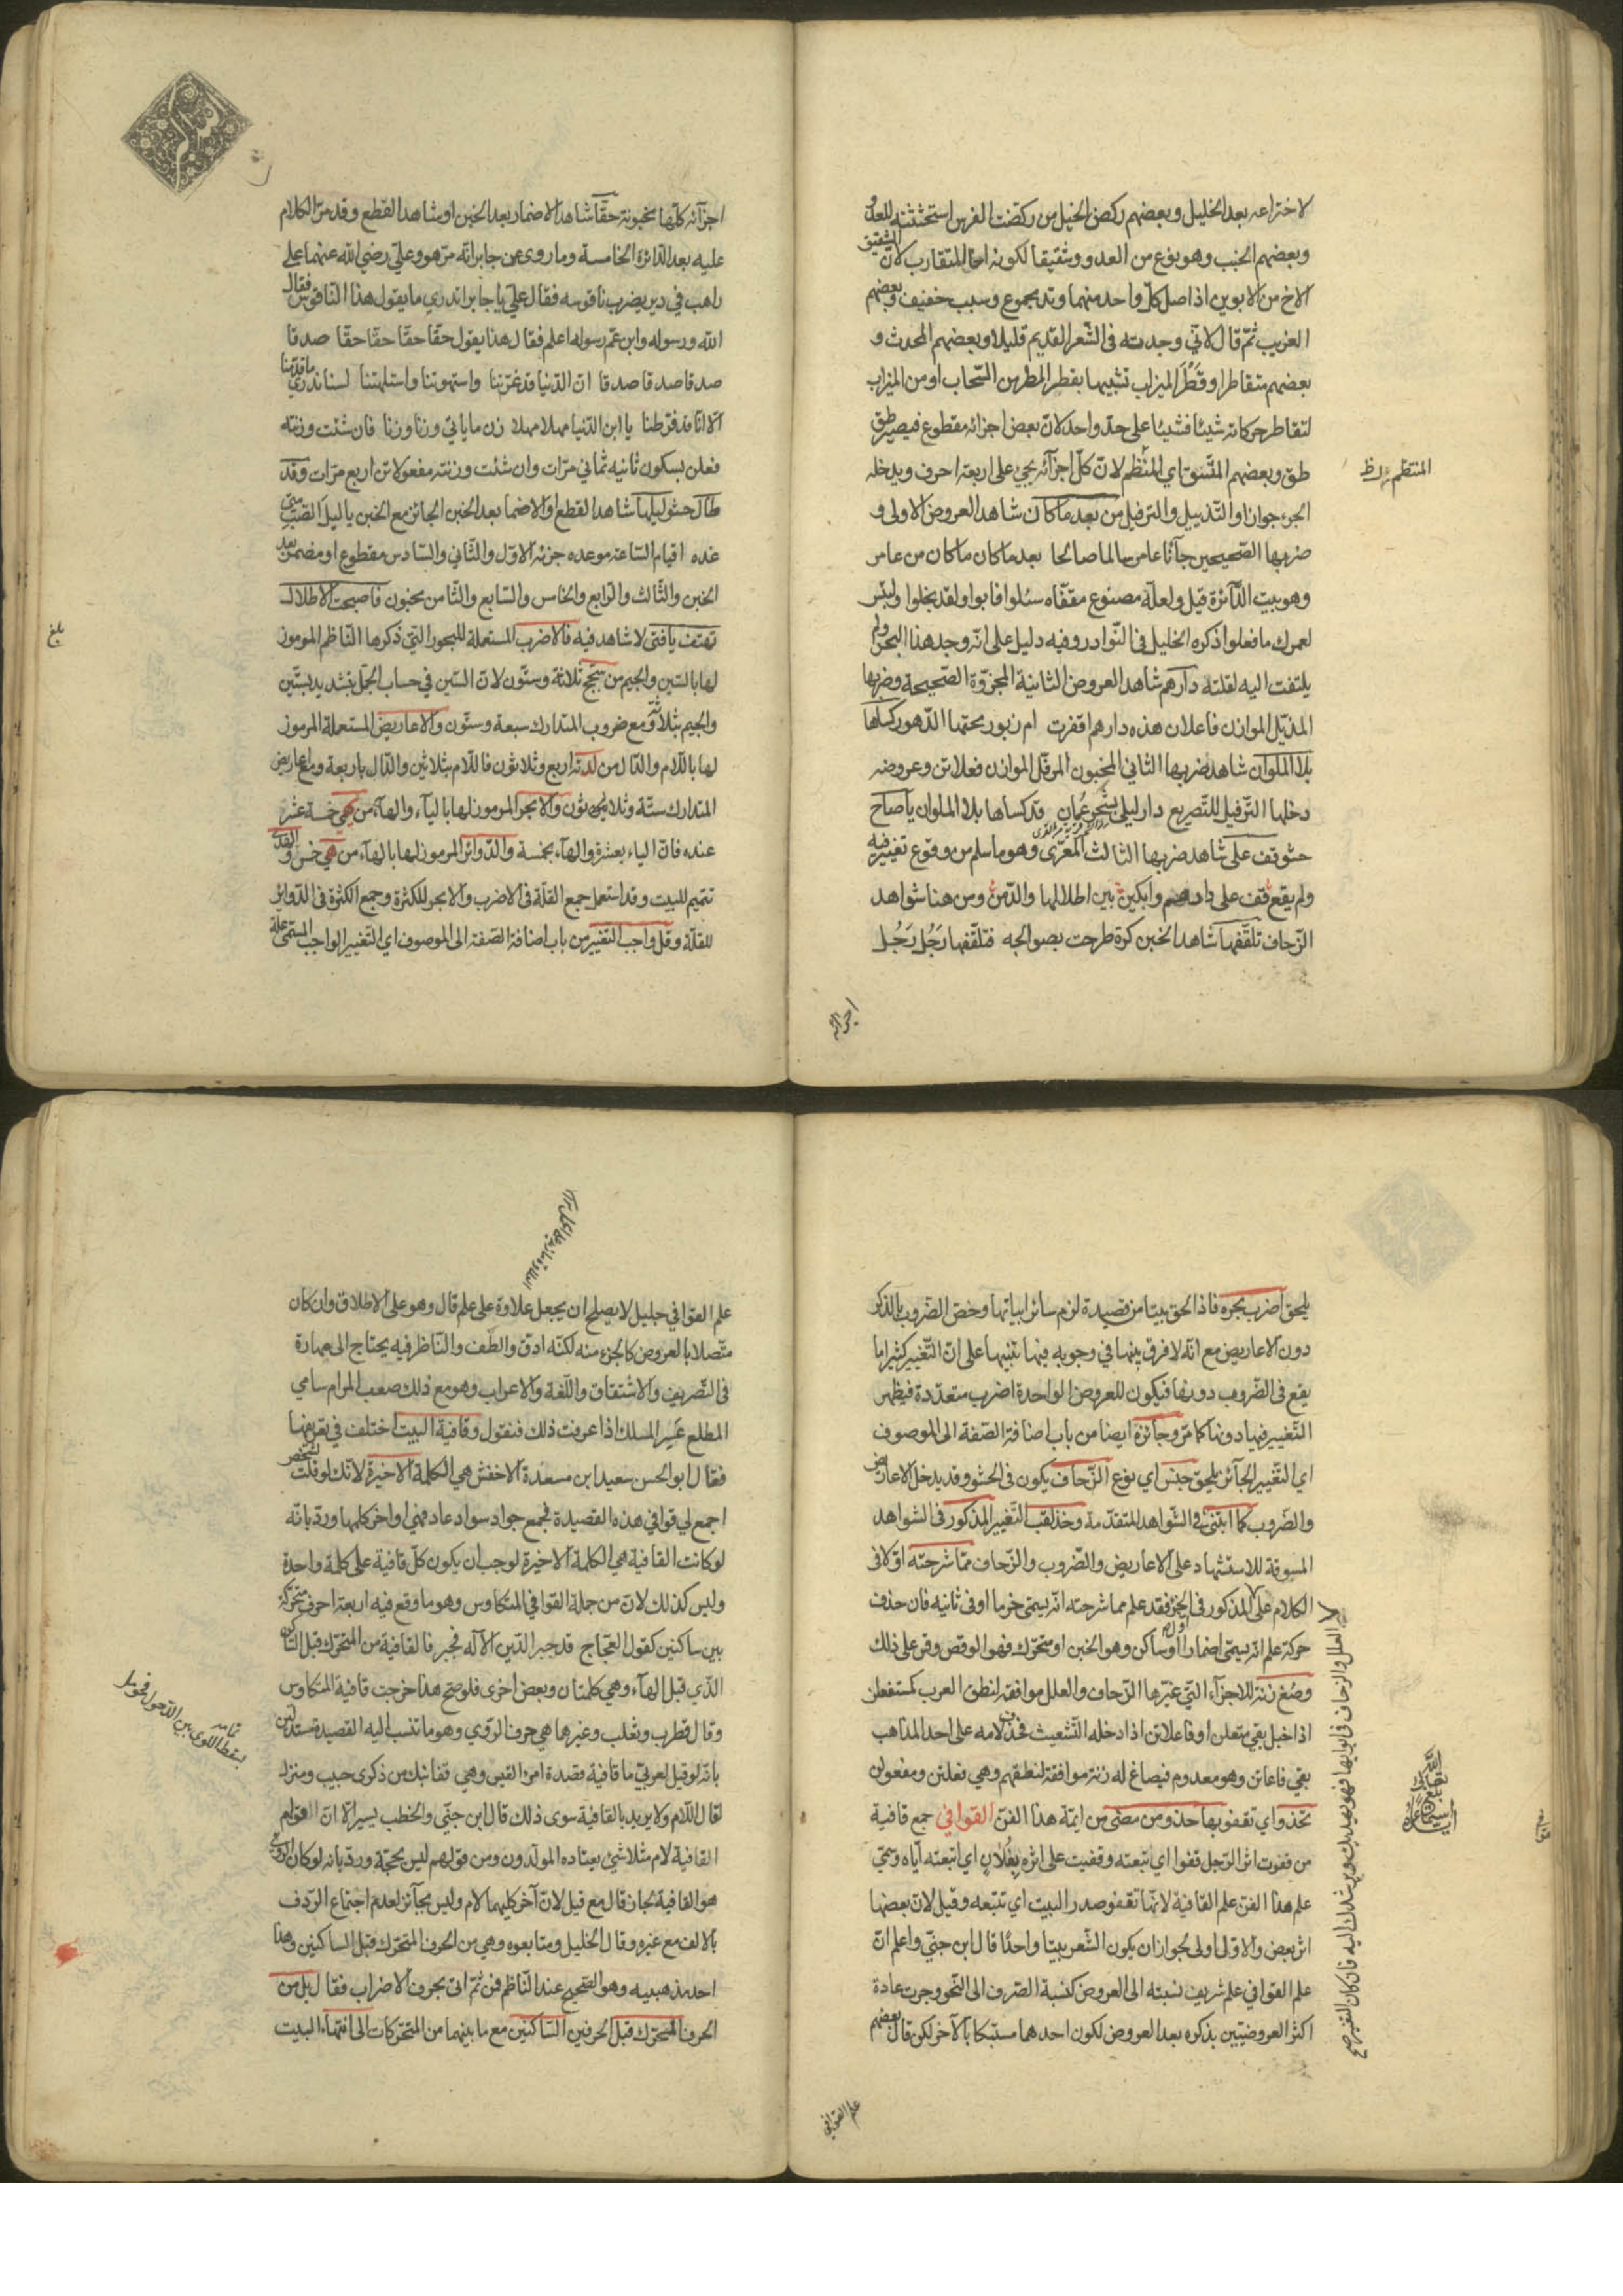 لاختراعه بعد الخليل وبعضهم ركض الخيل من ركضت الفرس استحثثته للعدو
وبعضهم الخبب وهو نوع من العدو وشقيقا لكونه اخا للمتقارب لان الشقيق
الاخ من الابوين اذ اصل كل واحد منهما وتد مجموع وسبب خفيف وبعضهم
الغريب ثم قال لاني وجدته فى الشعر القديم قليلا وبعضهم المحدث و
بعضهم متقاطرا وقطر الميزاب تشبيها بقطر المطر من السحاب او من الميزاب
لتقاطر حركاته شيئا فشيئا على حد واحد لان بعض اجزائه مقطوع فيصير طق
طق وبعضهم المتسق اي المنتظم لان كل اجزآئه يجئ على اربعة احرف ويدخله
المنتظم
الجزء جوازا والتذييل والترفيل من بعد ما كان شاهد العروض الاولى و
ضربها الصحيحين جآئنا عامر سالما صالحا بعد ما كان ما كان من عامر
وهو بيت الدآئرة قيل ولعله مصنوع مقفاه سئلوا فابوا ولقد بخلوا ولبئس
لعمرك ما فعلوا ذكره الخليل فى النوادر وفيه دليل على انه وجد هذا البحر ولم
يلتفت اليه لقلته دارهم شاهد العروض الثانية المجزوة الصحيحة وضربها
المذيل الموازن فاعلان هذه دارهم اقفرت ام زبور محتها الدهور كساها
بلا الملوان شاهد ضربها الثاني المخبون المرفل الموازن فعلاتن وعروضه
دخلها الترفيل للتصريع دار ليلى بشحر عمان قد كساها بلا الملوان ياصاح
حشو قف على شاهد ضربها الثالث المعرى وهو ما سلم من وقوع تغيير فيه
ولم يقع قف على دارهم وابكين بين اطلالها والدمن ومن هنا شواهد
الزحاف تلقفها شاهد الخبن كرة طرحت بصوالجه فتلقفها رجل رجل
اجزآئه
اجزآئه كلها مخبونة حقا شاهد الاضمار بعد الخبن او شاهد القطع وقد مر الكلام
عليه بعد الدائرة الخامسة وما روى عن جابر انه مر هو وعلي رضي الله عنهما على
راهب في دير يضرب ناقوسه فقال علي يا جابر اتدري ما يقول هذا الناقوس فقال
الله ورسوله وابن عم رسوله اعلم فقال هذا يقول حقا حقا حقا حقا صدقا
صدقا صدقا صدقا ان الدنيا قد غرتنا واستهوتنا واستلهتنا لسنا ندري ما قدمنا
الا انا قد فرطنا يا ابن الدنيا مهلا مهلا زن ما ياتي وزنا وزنا فان شئت وزنته
فعلن بسكون ثانيه ثماني مرات وان شئت وزنته مفعولاتن اربع مرات وقد
طال حشو ليلها شاهد القطع او الاضمار بعد الخبن الجائز مع الخبن يا ليل الصب متى
غده اقيام الساعة موعده جزئه الاول والثاني والسادس مقطوع او مضمر بعد
الخبن والثالث والرابع والخامس والسابع والثامن مخبون فاصبحت الاطلال
تهتف يا فتى لا شاهد فيه فالاضرب المستعملة للبحور التي ذكرها الناظم المرموز
بلغ
لها بالسين والجيم من سجح ثلاثة وستون لان السين في حساب الجمل بستين
والجيم بثلاثة ومع ضروب المتدارك سبعة وستون والاعاريض المستعملة المرموز
لها باللام والدال من لدته اربع وثلاثون فاللام بثلاثين والدال باربعة ومع اعاريض
المتدارك ستة وثلاثون والابحر المرموز لها باليآء والهآء من هي خمسة عشر
عنده فان الياء بعشرة والهآء بخمسة والدوائر المرموز لها بالهآء من هي خمس و
تتميم للبيت وقد استعمل جمع القلة فى الاضرب والابحر للكثرة وجمع الكثرة فى الدوائر
للقلة وقل واجب التغيير من باب اضافة الصفة الى الموصوف اي التغيير الواجب المسمى علة
يلحق اضرب بحره فاذا لحق بيتا من قصيدة لزم سائر ابياتها وخص الضروب بالذكر
دون الاعاريض مع انه لا فرق بينها في وجوبه فيها تنبيها على ان التغيير كثيرا ما
يقع فى الضروب دونها فيكون للعروض الواحدة اضرب متعددة فيظهر
التغيير فيها دونها كما مر وجآئزه ايضا من باب اضافة الصفة الى الموصوف
اي التغيير الجآئز يلحق جنس اي نوع الزحاف يكون فى الحشو وقد يدخل الاعاريض
والضروب كما ابتنى في الشواهد المتقدمة وخذ لقب التغيير المذكور فى الشواهد
المسوقة للاستشهاد على الاعاريض والضروب والزحاف مما شرحته اولا فى
الكلام على المذكور فى الجزء فقد علم مما شرحته انه يسمى خرما او فى ثانيه فان حذف
حركة علم انه يسمى اضمارا او ساكن وهو الخبن او متحرك فهو الوقص وقس على ذلك
وصغ زنة للاجزآء التي غيرها الزحاف والعلل موافقة لنطق العرب كمستفعلن
اذا خبل بقي متعلن او فاعلاتن اذا دخله التشعيث فحذف لامه على احد المذاهب
بقي فاعاتن وهو معدوم فيصاغ له زنة موافقة لنطقهم وهي فعلتن ومفعولن
تحذو اي تقفو بها حذو من مضى من ايمة هذا الفن القوافي جمع قافية
من قفوت اثر الرجل قفوا اي اتبعته وقفيت على اثره بفلان اي اتبعته اياه وسمى
علم هذا الفن علم القافية لانها تقفو صدر البيت اي تتبعه وقيل لان بعضها
اثر بعض والاول اولى لجواز ان يكون الشعر بيتا واحدا قال ابن جني واعلم ان
علم القوافي علم شريف نسبته الى العروض كنسبة الصرف الى النحو وجرت عادة
اكثر العروضيين بذكره بعد العروض لكون احدهما مستبكا بالآخر لكن قال بعضهم
علم القوافي
علم القوافي جليل لا يصلح ان يجعل علاوة على علم قال وهو على الاطلاق وان كان
متصلا بالعروض كالجزء منه لكنه ادق والطف والناظر فيه يحتاج الى مهارة
فى التصريف والاشتقاق واللغة والاعراب وهو مع ذلك صعب المرام سامي
المطلع عسير المسلك اذا عرفت ذلك فنقول وقافية البيت اختلف في تعريفها
فقال ابو الحسن سعيد ابن مسعدة الاخفش هي الكلمة الاخيرة لانك لو قلت لشخص
اجمع لي قوافي هذه القصيدة فجمع جواد سواد عاد مهني اواخر كلمها ورد بانه
لو كانت القافية هي الكلمة الاخيرة لوجب ان يكون كل قافية على كلمة واحدة
وليس كذلك لان من جملة القوافي المتكاوس وهو ما وقع فيه اربعة احرف متحركة
بين ساكنين كقول العجاج قد جبر الدين الآله فجبر فالقافية من المتحرك قبل الساكن
الذي قبل الهآء وهي كلمتان وبعض اخرى فلو صح هذا خرجت قافية المتكاوس
وقال قطرب وثعلب وغيرهما هي حرف الروي وهو ما تنسب اليه القصيدة مستدلين
بانه لو قيل لعربي ما قافية قصدة امرء القيس وهي قفا نبك من ذكرى حبيب ومنزل
لقال اللام ولا يريد بالقافية سوى ذلك قال ابن جني والخطب يسير الا ان العوام
القافية لام مثلا شئ يعتاده المولدون ومن قولهم ليس بحجة ورد بانه لو كان الروي
هو القافية لجاز قال مع قيل لان آخر كليهما لام وليس بجآئز لعدم اجتماع الردف
بالالف مع غيره وقال الخليل ومتابعوه وهي من الحرف المتحرك قبل الساكنين وهذا
احد مذهبيه وهو الصحيح عند الناظم فمن ثم اتى بحرف الاضراب فقال بل من
الحرف المتحرك قبل الحرفين الساكنين مع ما بينهما من المتحركات الى انتهاء البيت